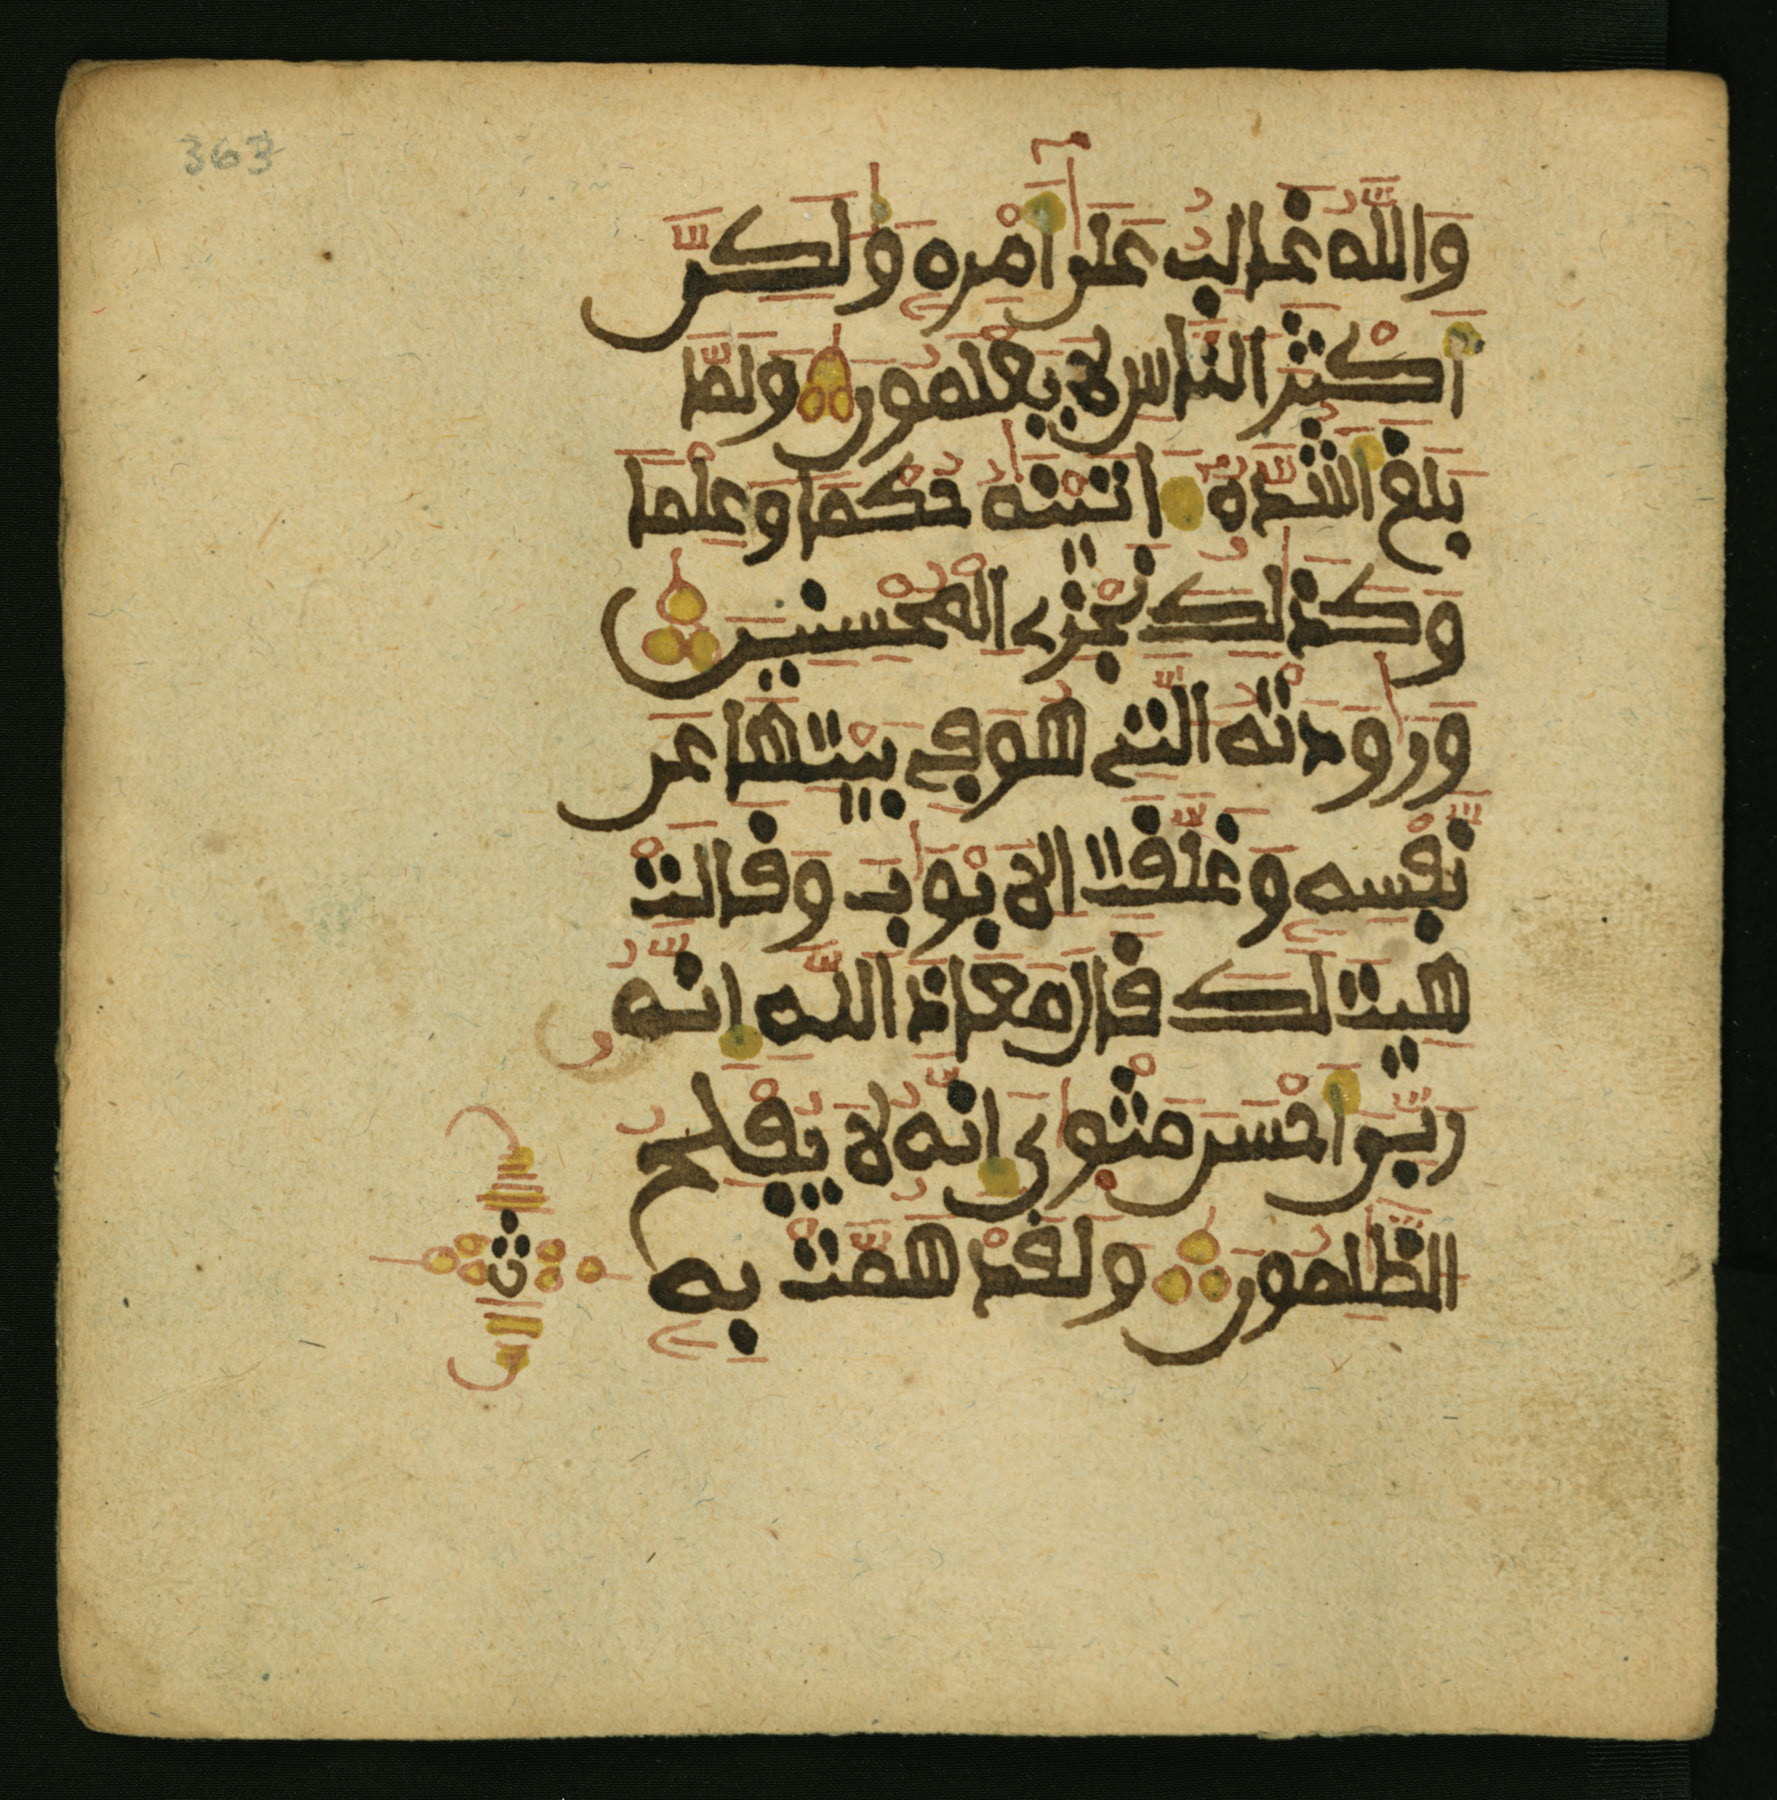 363
وَاللَّهُ غَالِبٌ عَلَىٰ أَمْرِهِ وَلَٰكِنَّ
أَكْثَرَ النَّاسِ لَا يَعْلَمُونَ وَلَمَّا
بَلَغَ أَشُدَّهُ ءَاتَيْنَٰهُ حُكْمًا وَعِلْمًا
وَكَذَٰلِكَ نَجْزِے الْمُحْسِنِينَ
وَرَٰوَدَتْهُ الَّتِے هُوَ فِے بَيْتِهَا عَن
نَّفْسِهِ وَغَلَّقَتِ الَابْوَٰبَ وَقَالَتْ
هِيتَ لَكَ قَالَ مَعَاذَ اللَّهِ إِنَّهُ
رَبِّيَ أَحْسَنَ مَثْوَايَ إِنَّهُ لَا يُفْلِحُ
الظَّٰلِمُونَ وَلَقَدْ هَمَّتْ بِهِ